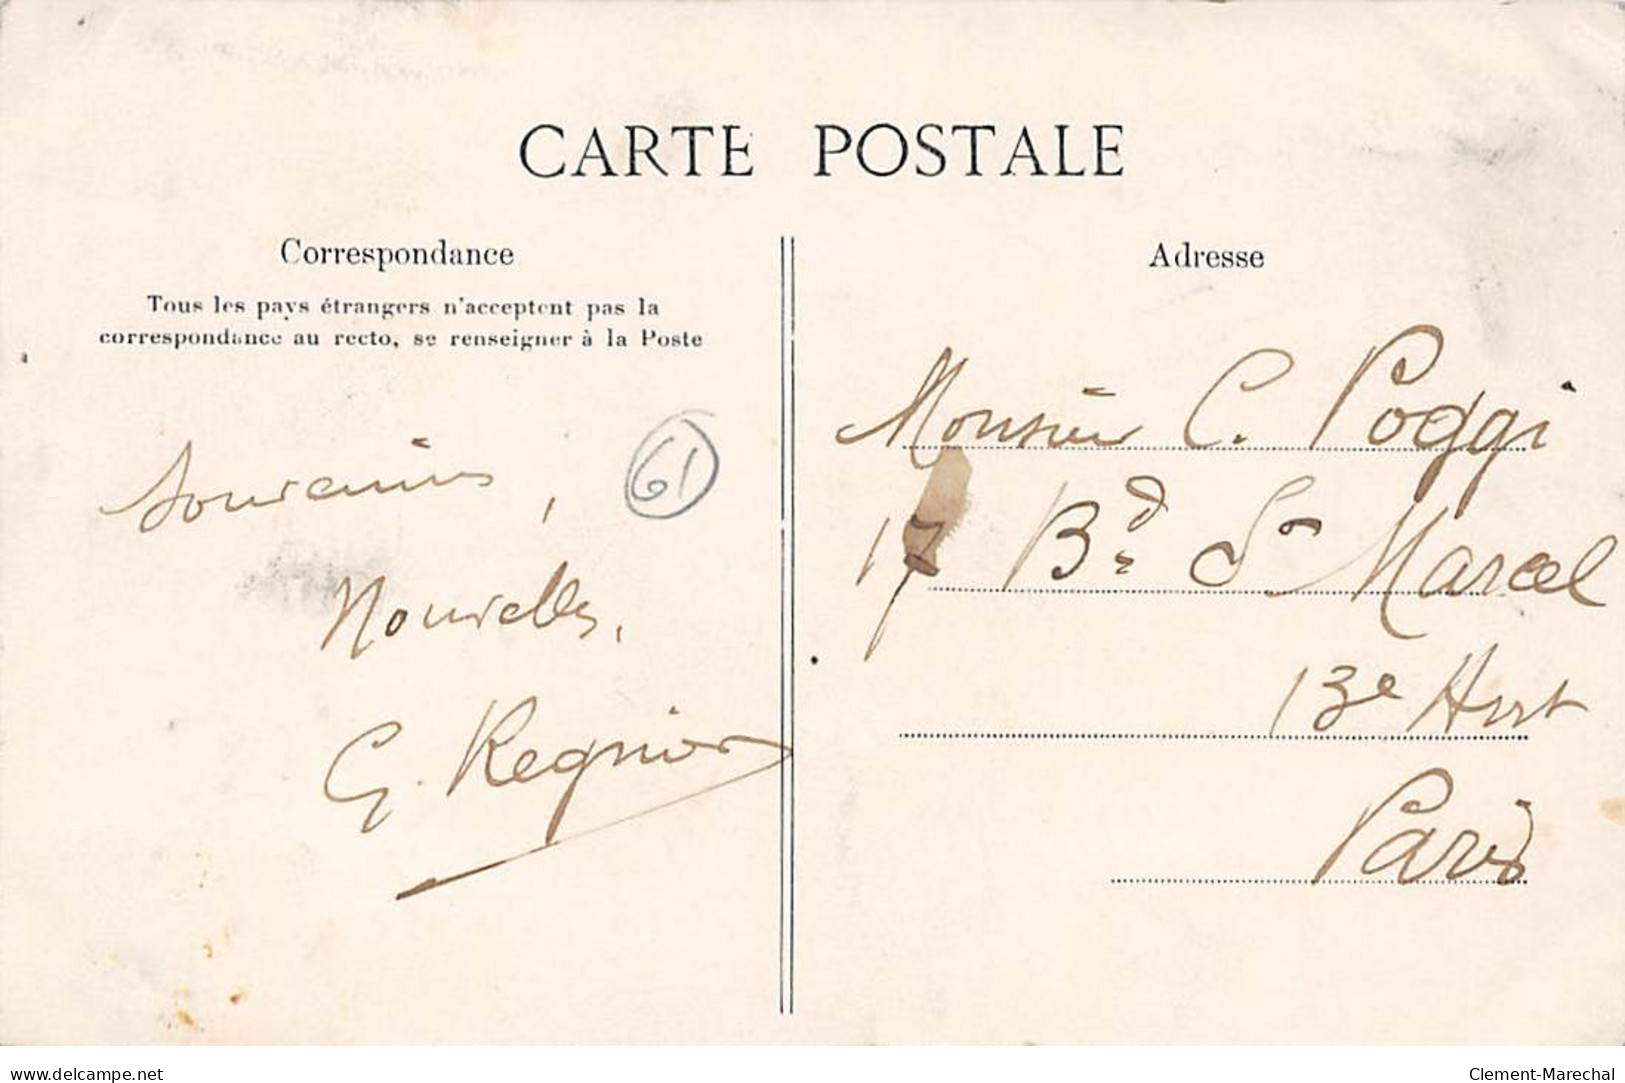 CARTE POSTALE
Correspondance
Tous les pays étrangers n'acceptent pas la
correspondance au recto, se renseigner à la Poste
Souvenirs,
61
Nouvelles.
G. Regnier
Adresse
Monsieur C. Poggi
17 Bd St Marcel
13e Arrt
Paris
www.delcampe.net
Clement-Marechal